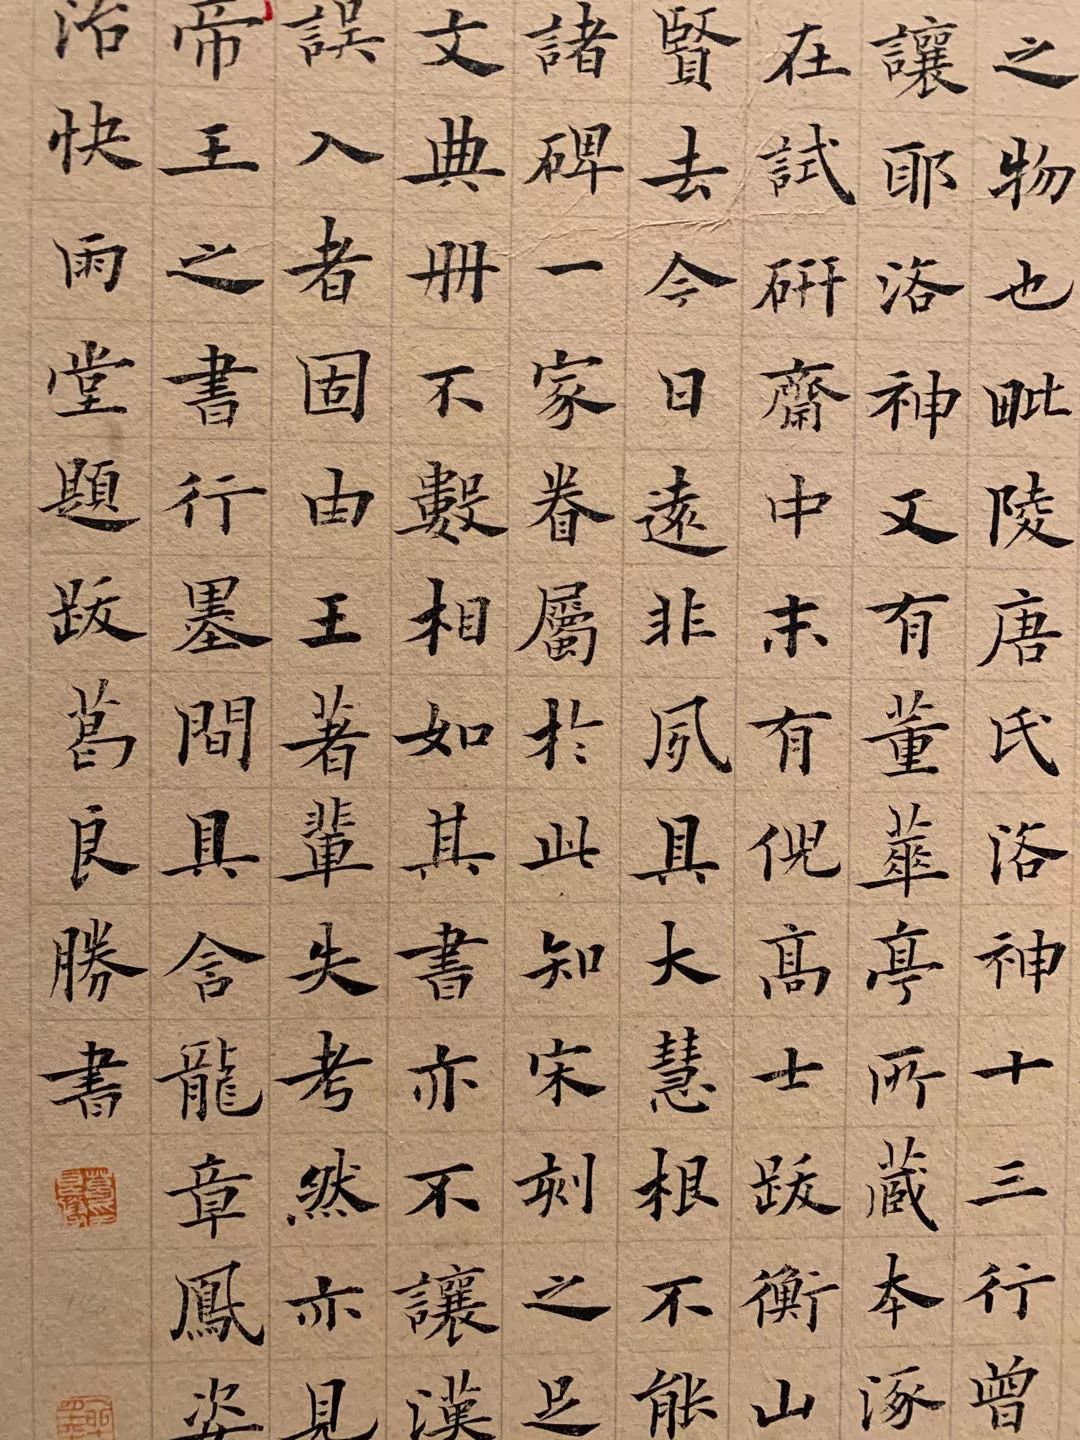 之物也毗陵唐氏洛神十三行曾
讓耶洛神又有董華亭所藏本涿
在試研齋中末有倪高士跋衡山
賢去今日遠非夙具大慧根不能
諸碑一家眷屬於此知宋刻之足
文典冊不數相如其書亦不讓漢
誤入者固由王著輩失考然亦見
帝王之書行墨間具含龍章鳳姿
治快雨堂題跋葛良勝書